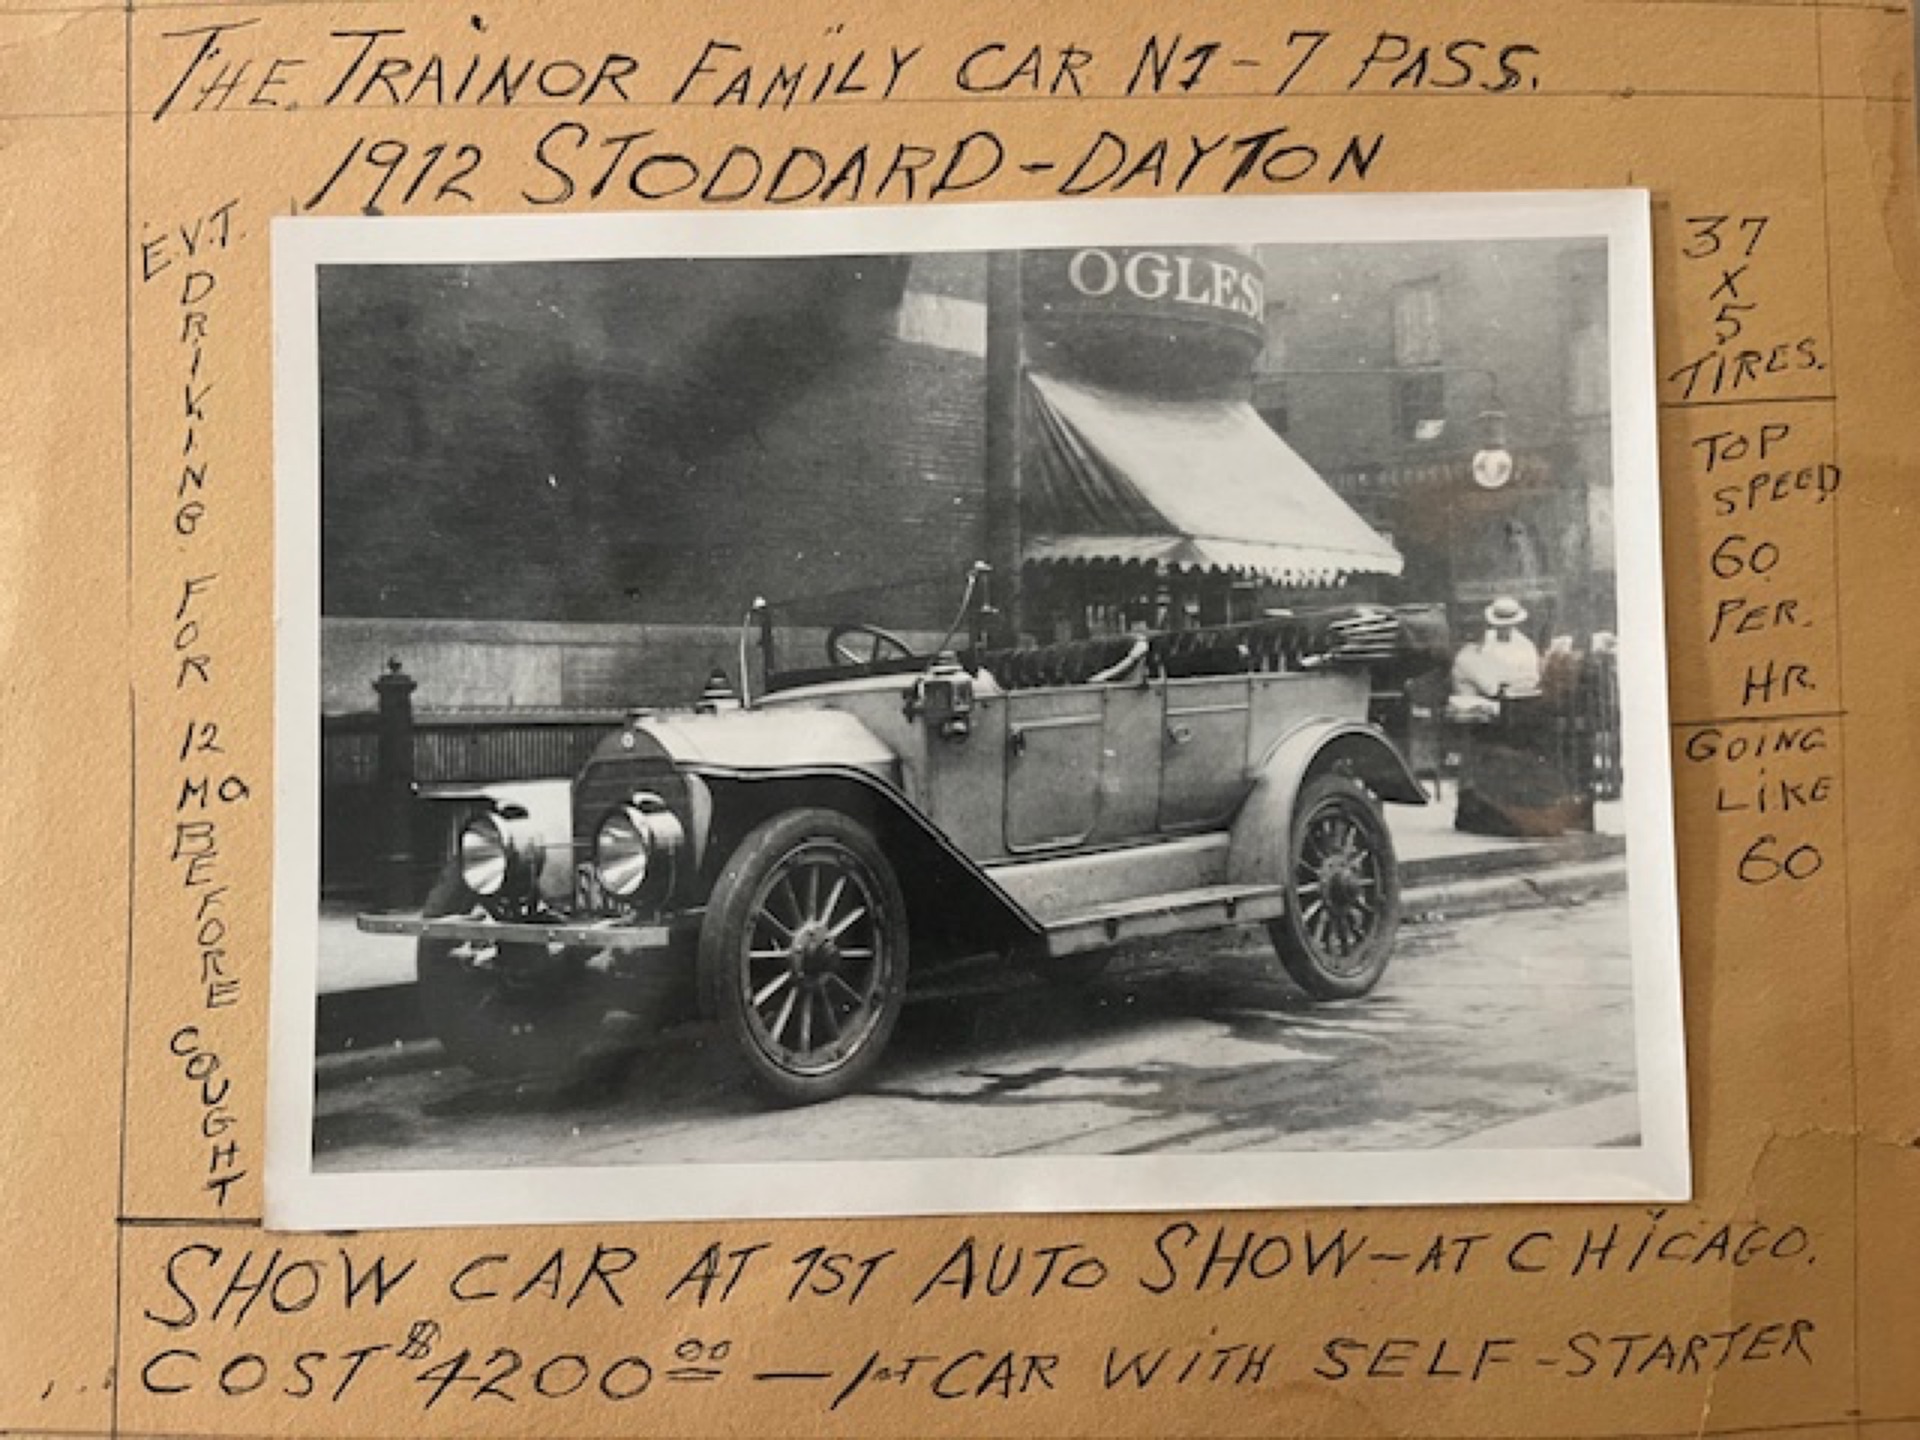 THE TRAINOR FAMILY CAR N1-7 PASS.
1912 STODDARD-DAYTON
E.V.T.
DRIKING
FOR
12
MO
BEFORE
COUGHT
OGLES
37
X
5
TIRES.
TOP
SPEED
60
PER.
HR.
GOING
LIKE
60
SHOW CAR AT 1ST AUTO SHOW-AT CHICAGO.
COST $4200.00 — 1ST CAR WITH SELF-STARTER